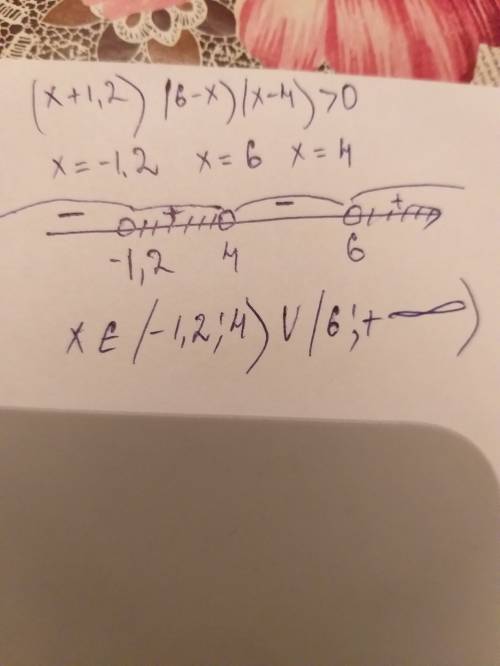 (x+1,2) (6-x)(x-4)>0
x=-1,2 x=6 x=4
- + - +
-1,2 4 6
x ∈ (-1,2;4) ∪ (6;+∞)